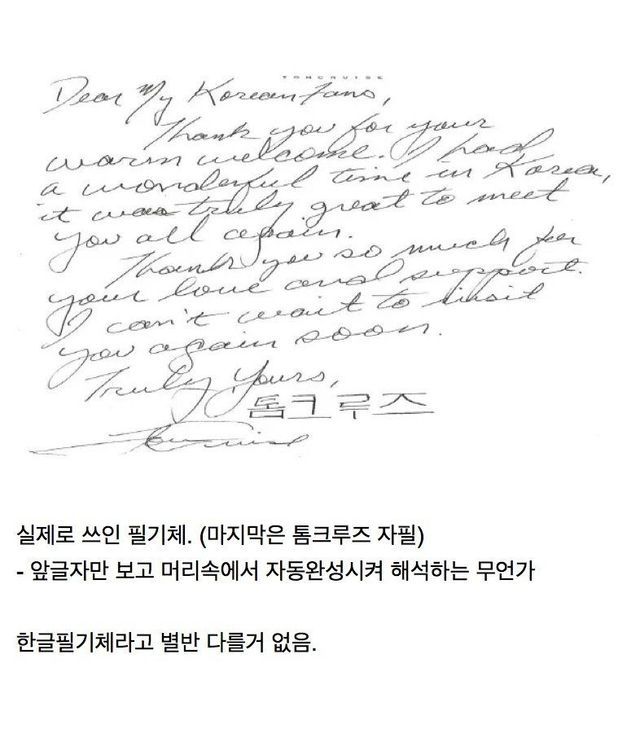 TOM CRUISE
Dear My Korean Fans,
Thank you for your
warm welcome. I had
a wonderful time in Korea,
it was truly great to meet
you all again.
Thank you so much for
your love and support.
I can't wait to visit
you again soon.
Truly Yours,
톰크루즈
실제로 쓰인 필기체. (마지막은 톰크루즈 자필)
- 앞글자만 보고 머리속에서 자동완성시켜 해석하는 무언가
한글필기체라고 별반 다를거 없음.